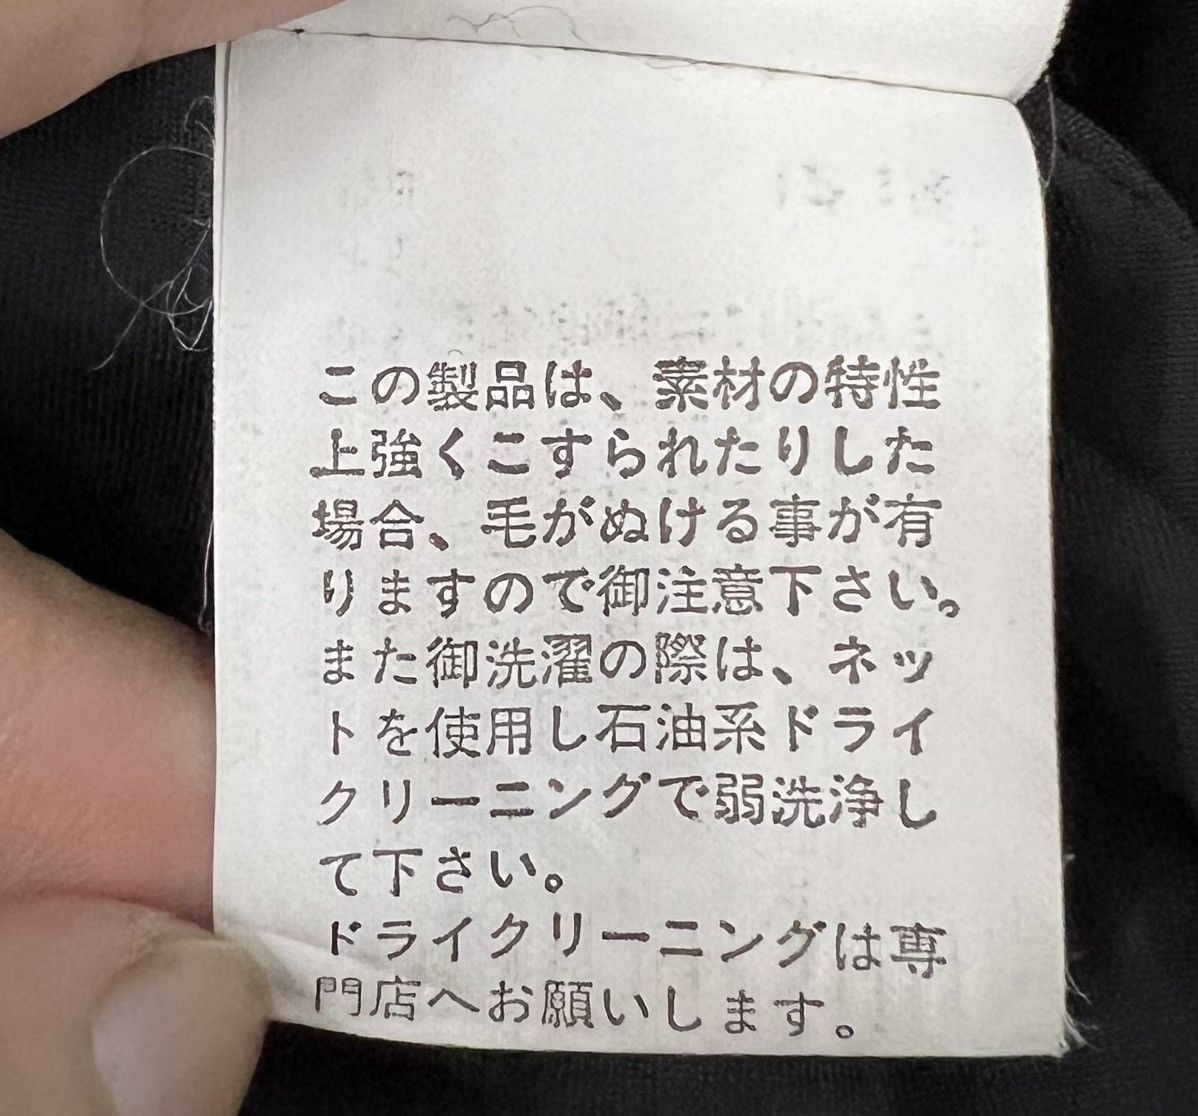 この製品は、素材の特性
上強くこすられたりした
場合、毛がぬける事が有
りますので御注意下さい。
また御洗濯の際は、ネッ
トを使用し石油系ドライ
クリーニングで弱洗浄し
て下さい。
ドライクリーニングは専
門店へお願いします。